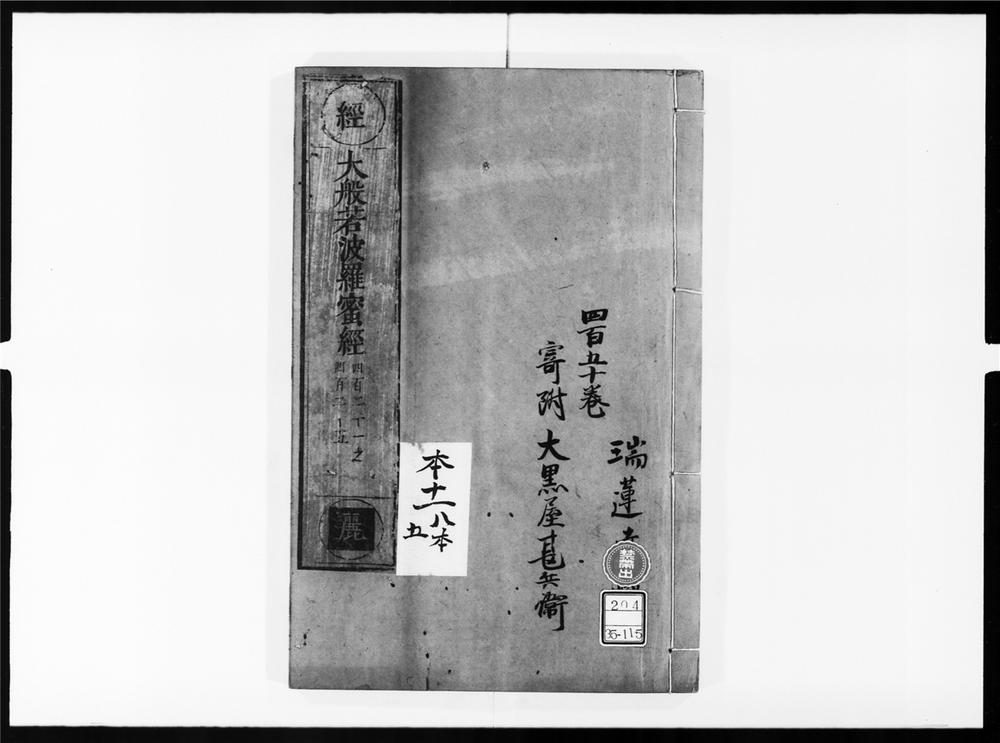 經
大般若波羅蜜經
四百二十一之
四百二十五
麗
本十一
八本
五
四百五十巻
寄附 大黒屋甚兵衛
瑞蓮寺
禁帶出
204
35-115